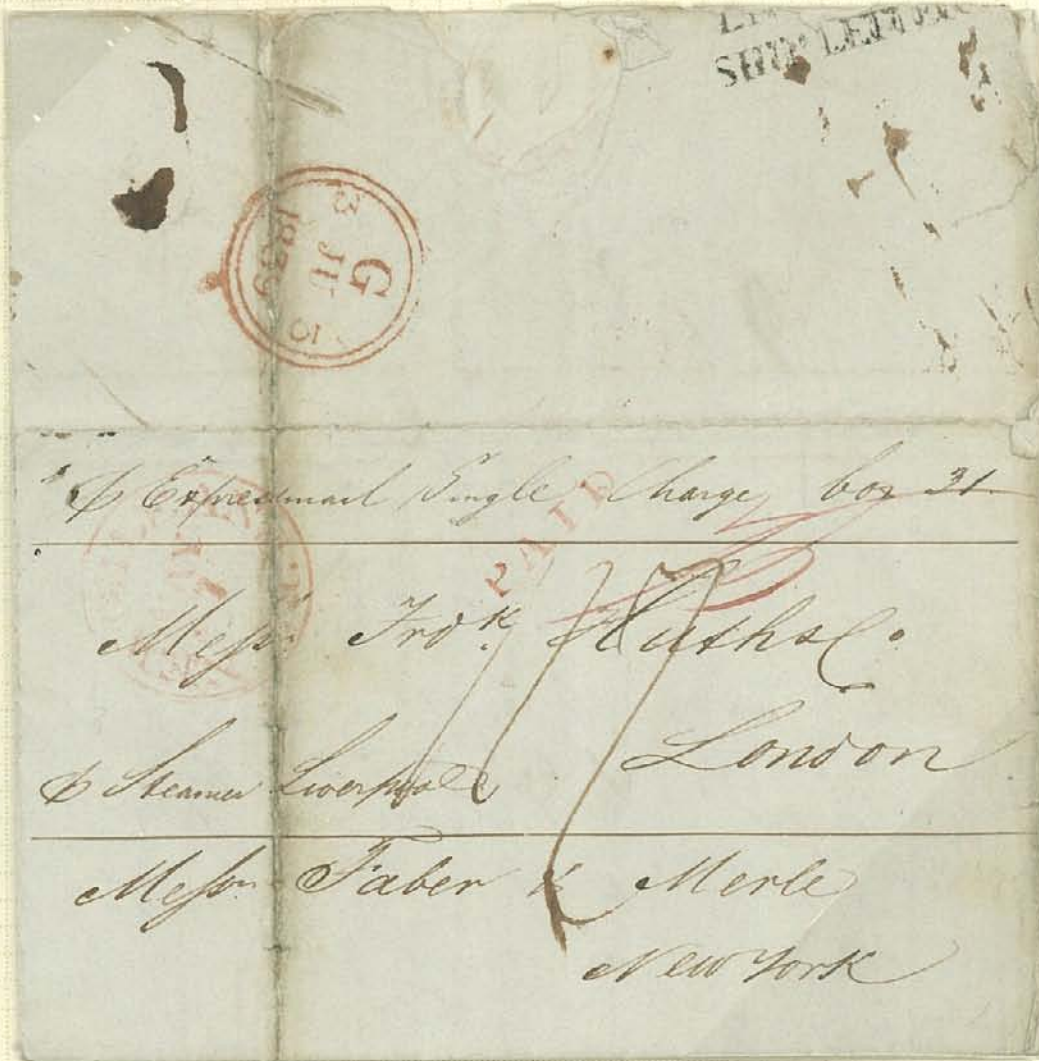 SHIP LETTER
G
3 JU 3
1839
⅌ Expressmail Single Charge box 31
PAID
Messrs Fredk Huth & Co.
London
⅌ Steamer Liverpool
Messrs Faber & Merle
New York